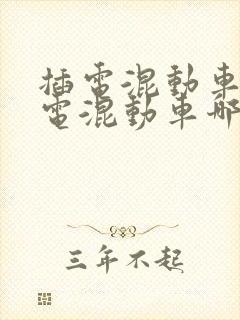 插電混動車
電混動車哪
三年不起